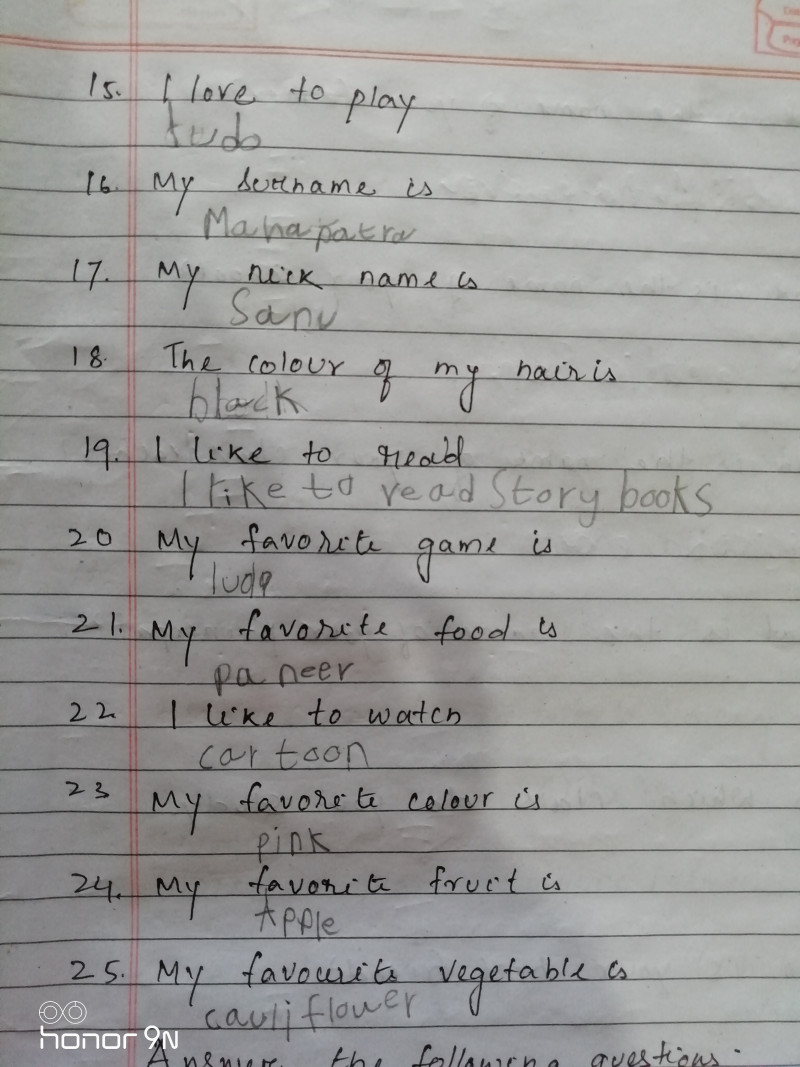 15. I love to play
ludo
16. My surname is
Mahapatra
17. My nick name is
Sanu
18. The colour of my hair is
black
19. I like to read
I like to read Story books
20 My favorite game is
ludo
21. My favorite food is
paneer
22 I like to watch
cartoon
23 My favorite colour is
pink
24. My favorite fruit is
Apple
25. My favourite vegetable is
cauliflower
Answer the following questions:
honor 9N